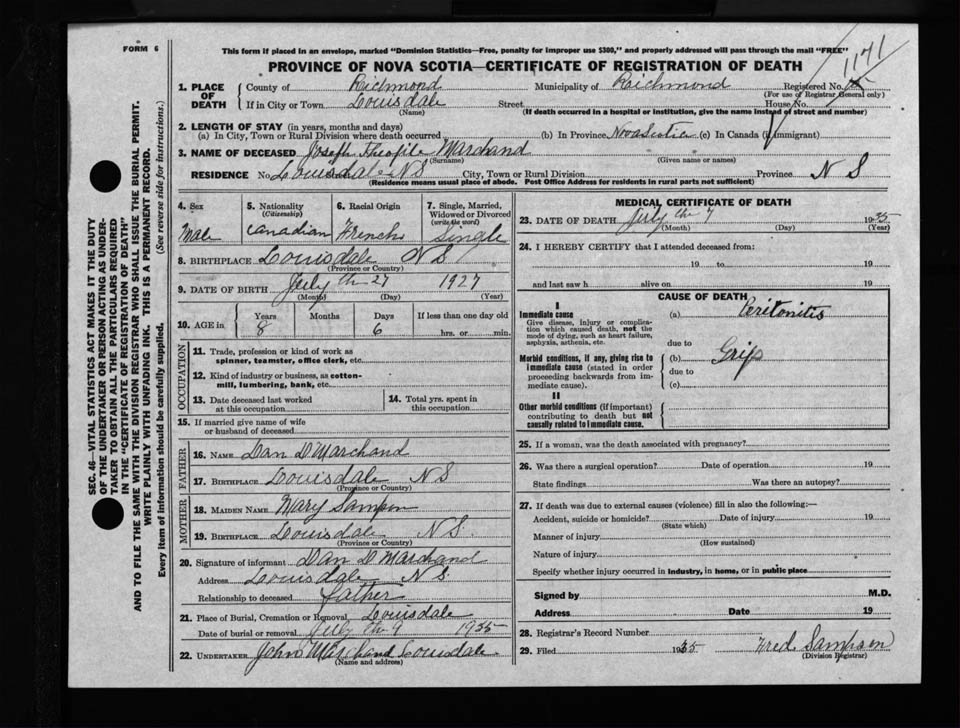 FORM 6
This form if placed in an envelope, marked "Dominion Statistics—Free, penalty for improper use $300," and properly addressed will pass through the mail "FREE"
1171
PROVINCE OF NOVA SCOTIA—CERTIFICATE OF REGISTRATION OF DEATH
1. PLACE OF DEATH
County of Richmond Municipality of Richmond Registered No.
(For use of Registrar General only)
If in City or Town Louisdale Street House No.
(Name) (If death occurred in a hospital or institution, give the name instead of street and number)
2. LENGTH OF STAY (in years, months and days)
(a) In City, Town or Rural Division where death occurred (b) In Province Nova Scotia (c) In Canada (if immigrant)
3. NAME OF DECEASED Joseph Theofile Marchand
(Surname) (Given name or names)
RESIDENCE No. Louisdale N S City, Town or Rural Division Province N S
(Residence means usual place of abode. Post Office Address for residents in rural parts not sufficient)
4. Sex
Male
5. Nationality
(Citizenship)
Canadian
6. Racial Origin
French
7. Single, Married, Widowed or Divorced
(write the word)
Single
8. BIRTHPLACE Louisdale N S
(Province or Country)
9. DATE OF BIRTH July th 27 1927
(Month) (Day) (Year)
10. AGE in
Years Months Days If less than one day old
8 6 hrs. or min.
OCCUPATION
11. Trade, profession or kind of work as
spinner, teamster, office clerk, etc.
12. Kind of industry or business, as cotton-
mill, lumbering, bank, etc.
13. Date deceased last worked
at this occupation
14. Total yrs. spent in
this occupation
15. If married give name of wife
or husband of deceased
FATHER
16. NAME Dan D Marchand
17. BIRTHPLACE Louisdale N S
(Province or Country)
MOTHER
18. MAIDEN NAME Mary Sampson
19. BIRTHPLACE Louisdale N S.
(Province or Country)
20. Signature of informant Dan D Marchand
Address Louisdale N S.
Relationship to deceased father
21. Place of Burial, Cremation or Removal Louisdale
Date of burial or removal July th 9 1935
22. UNDERTAKER John Marchand Louisdale.
(Name and address)
MEDICAL CERTIFICATE OF DEATH
23. DATE OF DEATH July th 7 1935
(Month) (Day) (Year)
24. I HEREBY CERTIFY that I attended deceased from:
19 to 19
and last saw h alive on 19
CAUSE OF DEATH
I
Immediate cause
Give disease, injury or complica-
tion which caused death, not the
mode of dying, such as heart failure,
asphyxia, asthenia, etc.
(a) Peritonitis
due to
Morbid conditions, if any, giving rise to
immediate cause (stated in order
proceeding backwards from im-
mediate cause).
(b) Grip
due to
(c)
II
Other morbid conditions (if important)
contributing to death but not
causally related to immediate cause.
25. If a woman, was the death associated with pregnancy?
26. Was there a surgical operation? Date of operation 19
State findings Was there an autopsy?
27. If death was due to external causes (violence) fill in also the following:—
Accident, suicide or homicide? Date of injury 19
(State which)
Manner of injury
(How sustained)
Nature of injury
Specify whether injury occurred in industry, in home, or in public place
Signed by M.D.
Address Date 19
28. Registrar's Record Number
29. Filed 1935 Fred Sampson
(Division Registrar)
SEC. 46—VITAL STATISTICS ACT MAKES IT THE DUTY
OF THE UNDERTAKER OR PERSON ACTING AS UNDER-
TAKER TO OBTAIN ALL THE PARTICULARS REQUIRED
IN THE "CERTIFICATE OF REGISTRATION OF DEATH"
AND TO FILE THE SAME WITH THE DIVISION REGISTRAR WHO SHALL ISSUE THE BURIAL PERMIT.
WRITE PLAINLY WITH UNFADING INK. THIS IS A PERMANENT RECORD.
Every item of information should be carefully supplied. (See reverse side for instructions.)